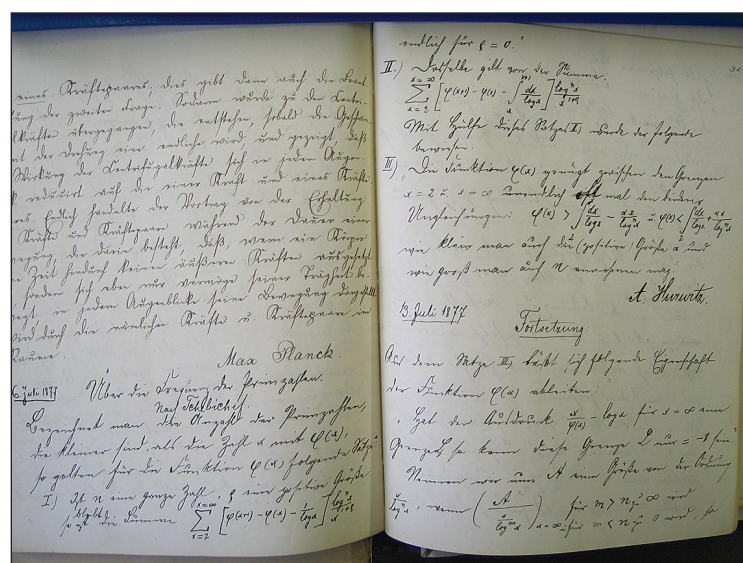 eines Kräftepaares; dies gibt dann auch die Beant-
ung der zweiten Frage. Sodann wurde zu den Centri-
alkräften übergegangen, die entstehen, sobald die Geschwin-
der Drehung eine endliche wird, und gezeigt, daß
Wirkung der Centrifugalkräfte sich in jedem Augen-
k reducirt auf die einer Kraft und eines Kräfte-
res. Endlich handelte der Vortrag von der Erhaltung
Kräfte und Kräftepaare während der Dauer einer
wegung, die darin besteht, daß, wenn ein Körper
Zeit hindurch keinen äußeren Kräften ausgesetzt
sondern sich eben nur vermöge seiner Trägheit be-
wegt, in jedem Augenblicke seine Bewegung dargestellt
wird durch die nämlichen Kräfte u. Kräftepaare im
Raume.
Max Planck.
6. Juli 1877 Über die Frequenz der Primzahlen.
Nach Tchibichef.
Bezeichnet man die Anzahl der Primzahlen,
die kleiner sind, als die Zahl x mit φ(x),
so gelten für die Funktion φ(x) folgende Sätze:
I) Ist n eine ganze Zahl, ρ eine positive Größe
so bleibt die Summe ∑ x=2 x=∞ [φ(x+1) - φ(x) - 1/log x] log^n x / x^{1+ρ}
endlich für ρ = 0."
II.) Dasselbe gilt von der Summe:
∑ x=2 x=∞ [φ(x+1) - φ(x) - ∫ x x+1 dx/log x] log^n x / x^{1+ρ}
Mit Hülfe dieses Satzes II) wurde der folgende
bewiesen:
III) „Die Funktion φ(x) genügt zwischen den Grenzen
x = 2 u. x = ∞ unendlich oft mal den beiden
Ungleichungen: φ(x) > ∫ 2 x dx/log x - αx/log^n x u. φ(x) < ∫ 2 x dx/log x + αx/log^n x
wie klein man auch die (positive) Größe α und
wie groß man auch n annehmen mag.
A. Hurwitz.
13. Juli 1877
Fortsetzung
Aus dem Satze III) läßt sich folgende Eigenschaft
der Funktion φ(x) ableiten:
„Hat der Ausdruck x/φ(x) - log x für x = ∞ eine
Grenze L so kann diese Grenze L nur = -1 sein."
Nennen wir nun A eine Größe von der Ordnung
x/log^n x, wenn (A / x/log^m x) x=∞ für m > n zu ∞ wird
für m < n zu 0 wird, so